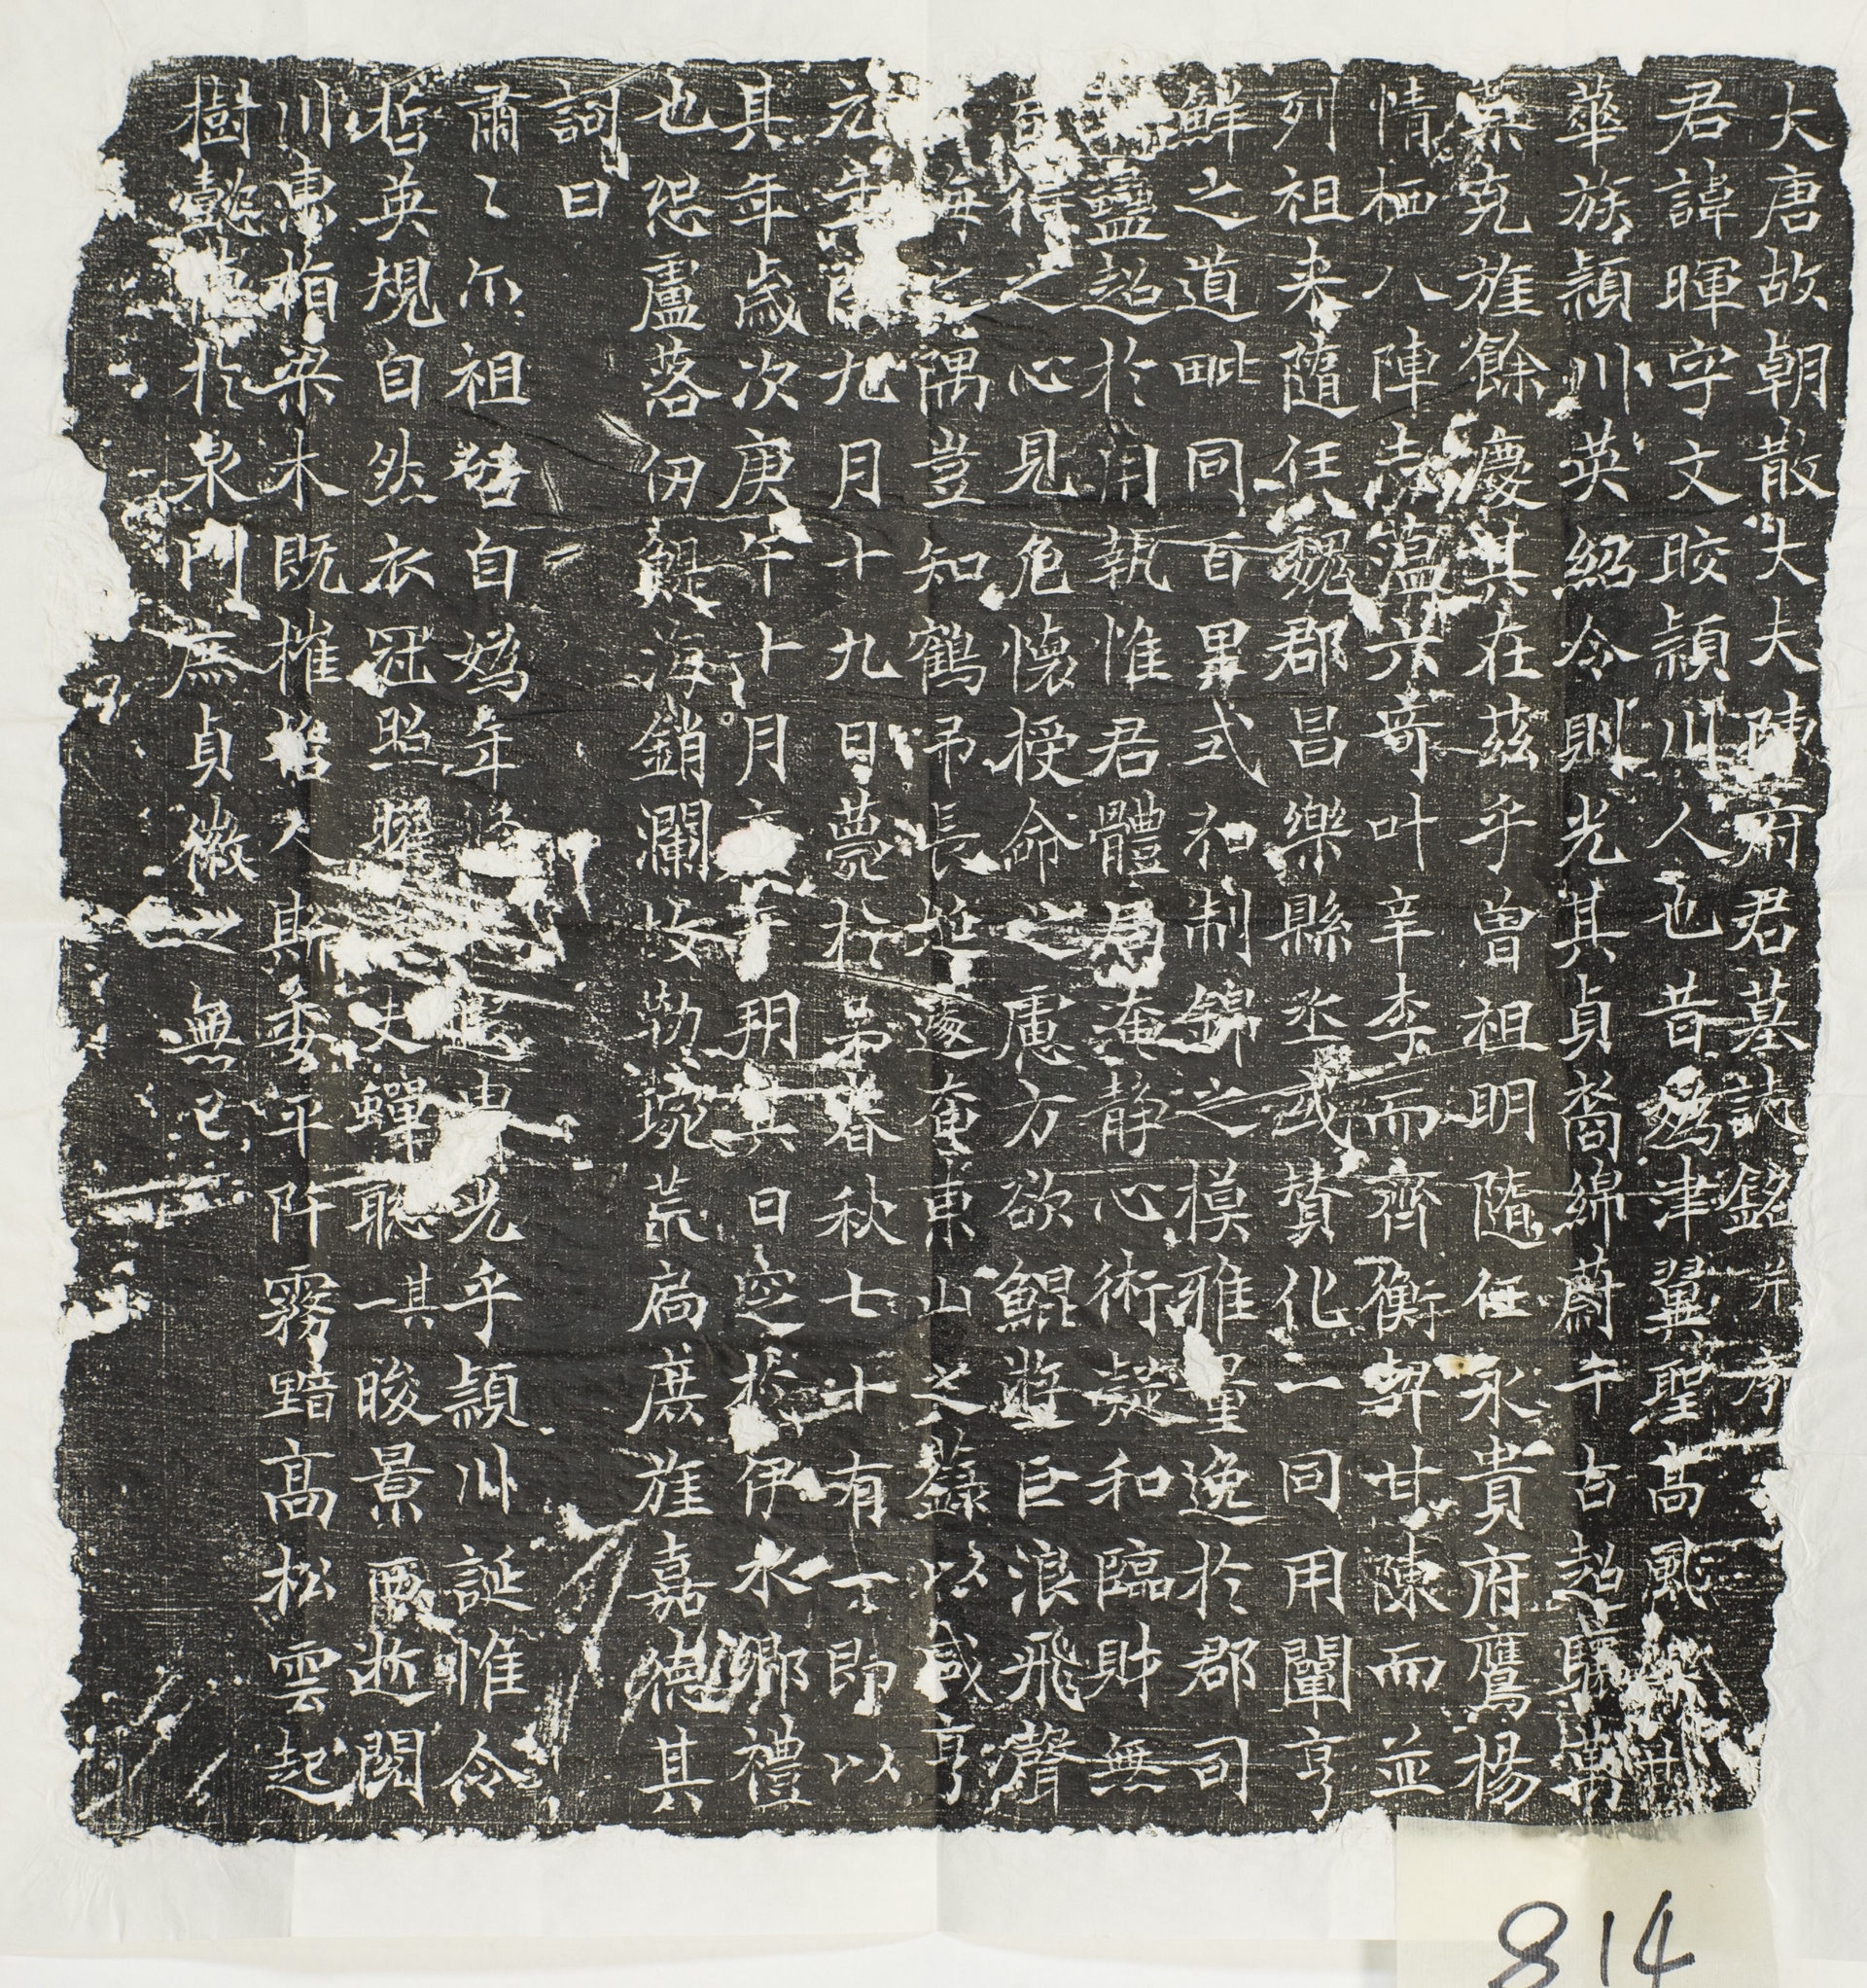 大唐故朝散大夫陳府君墓誌銘并序
君諱暉字文晈潁川人也昔媯津翼聖高風
華族潁川英紹令則光其貞裔綿蔚千古超
葉克旌餘慶其在茲乎曾祖明隨任永貴府鷹揚
情栖八陣志蘊六奇叶辛李而齊衡契甘陳而並
列祖來隨任魏郡昌樂縣丞或贊化一同用闡亨
鮮之道毗同百里式和制錦之模雅量逸於郡司
蠱超於用執惟君體局淹静心術凝和臨財無
得之心見危懷授命之慮方欲鯤遊巨浪飛聲
海之隅豈知鶴弔長筵遽奄東山之藤以咸亨
元年九月十九日薨於第春秋七十有一即以
其年歲次庚午十月朔其日窆於伊水鄉禮
也恐盧落仞鯷海銷瀾妆勒琬荒扃庶旌嘉德其
詞曰
肅〻尒祖啓自媯年光乎潁川誕惟令
哲英規自然衣冠照丈蟬聯其一晙景西逝閱
川東栢梁木既摧哲人斯委平阡霧黯高松雲起
樹懿德於泉門庶貞徽之無亡
814